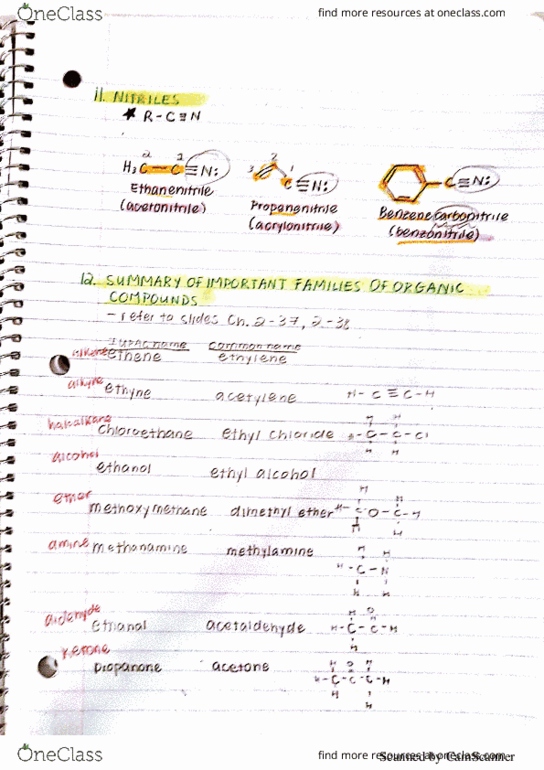 OneClass
find more resources at oneclass.com
11. NITRILES
★ R-C≡N
2 1
H₃C-C≡N:
3 2 1
C≡N:
C≡N:
Ethanenitrile
(acetonitrile)
Propenenitrile
(acrylonitrile)
Benzenecarbonitrile
(benzonitrile)
12. SUMMARY OF IMPORTANT FAMILIES OF ORGANIC
COMPOUNDS
- refer to slides Ch. 2-37, 2-38
IUPAC name common name
alkene ethene ethylene
alkyne ethyne acetylene H-C≡C-H
haloalkane chloroethane ethyl chloride H-C-C-Cl
H H
H H
alcohol ethanol ethyl alcohol
ether methoxymethane dimethyl ether H-C-O-C-H
H H
H H
amine methanamine methylamine H-C-N
H H
aldehyde ethanal acetaldehyde H-C-C-H
H O
H
ketone propanone acetone H-C-C-C-H
H O H
H H
OneClass
find more resources at oneclass.com
Scanned by CamScanner